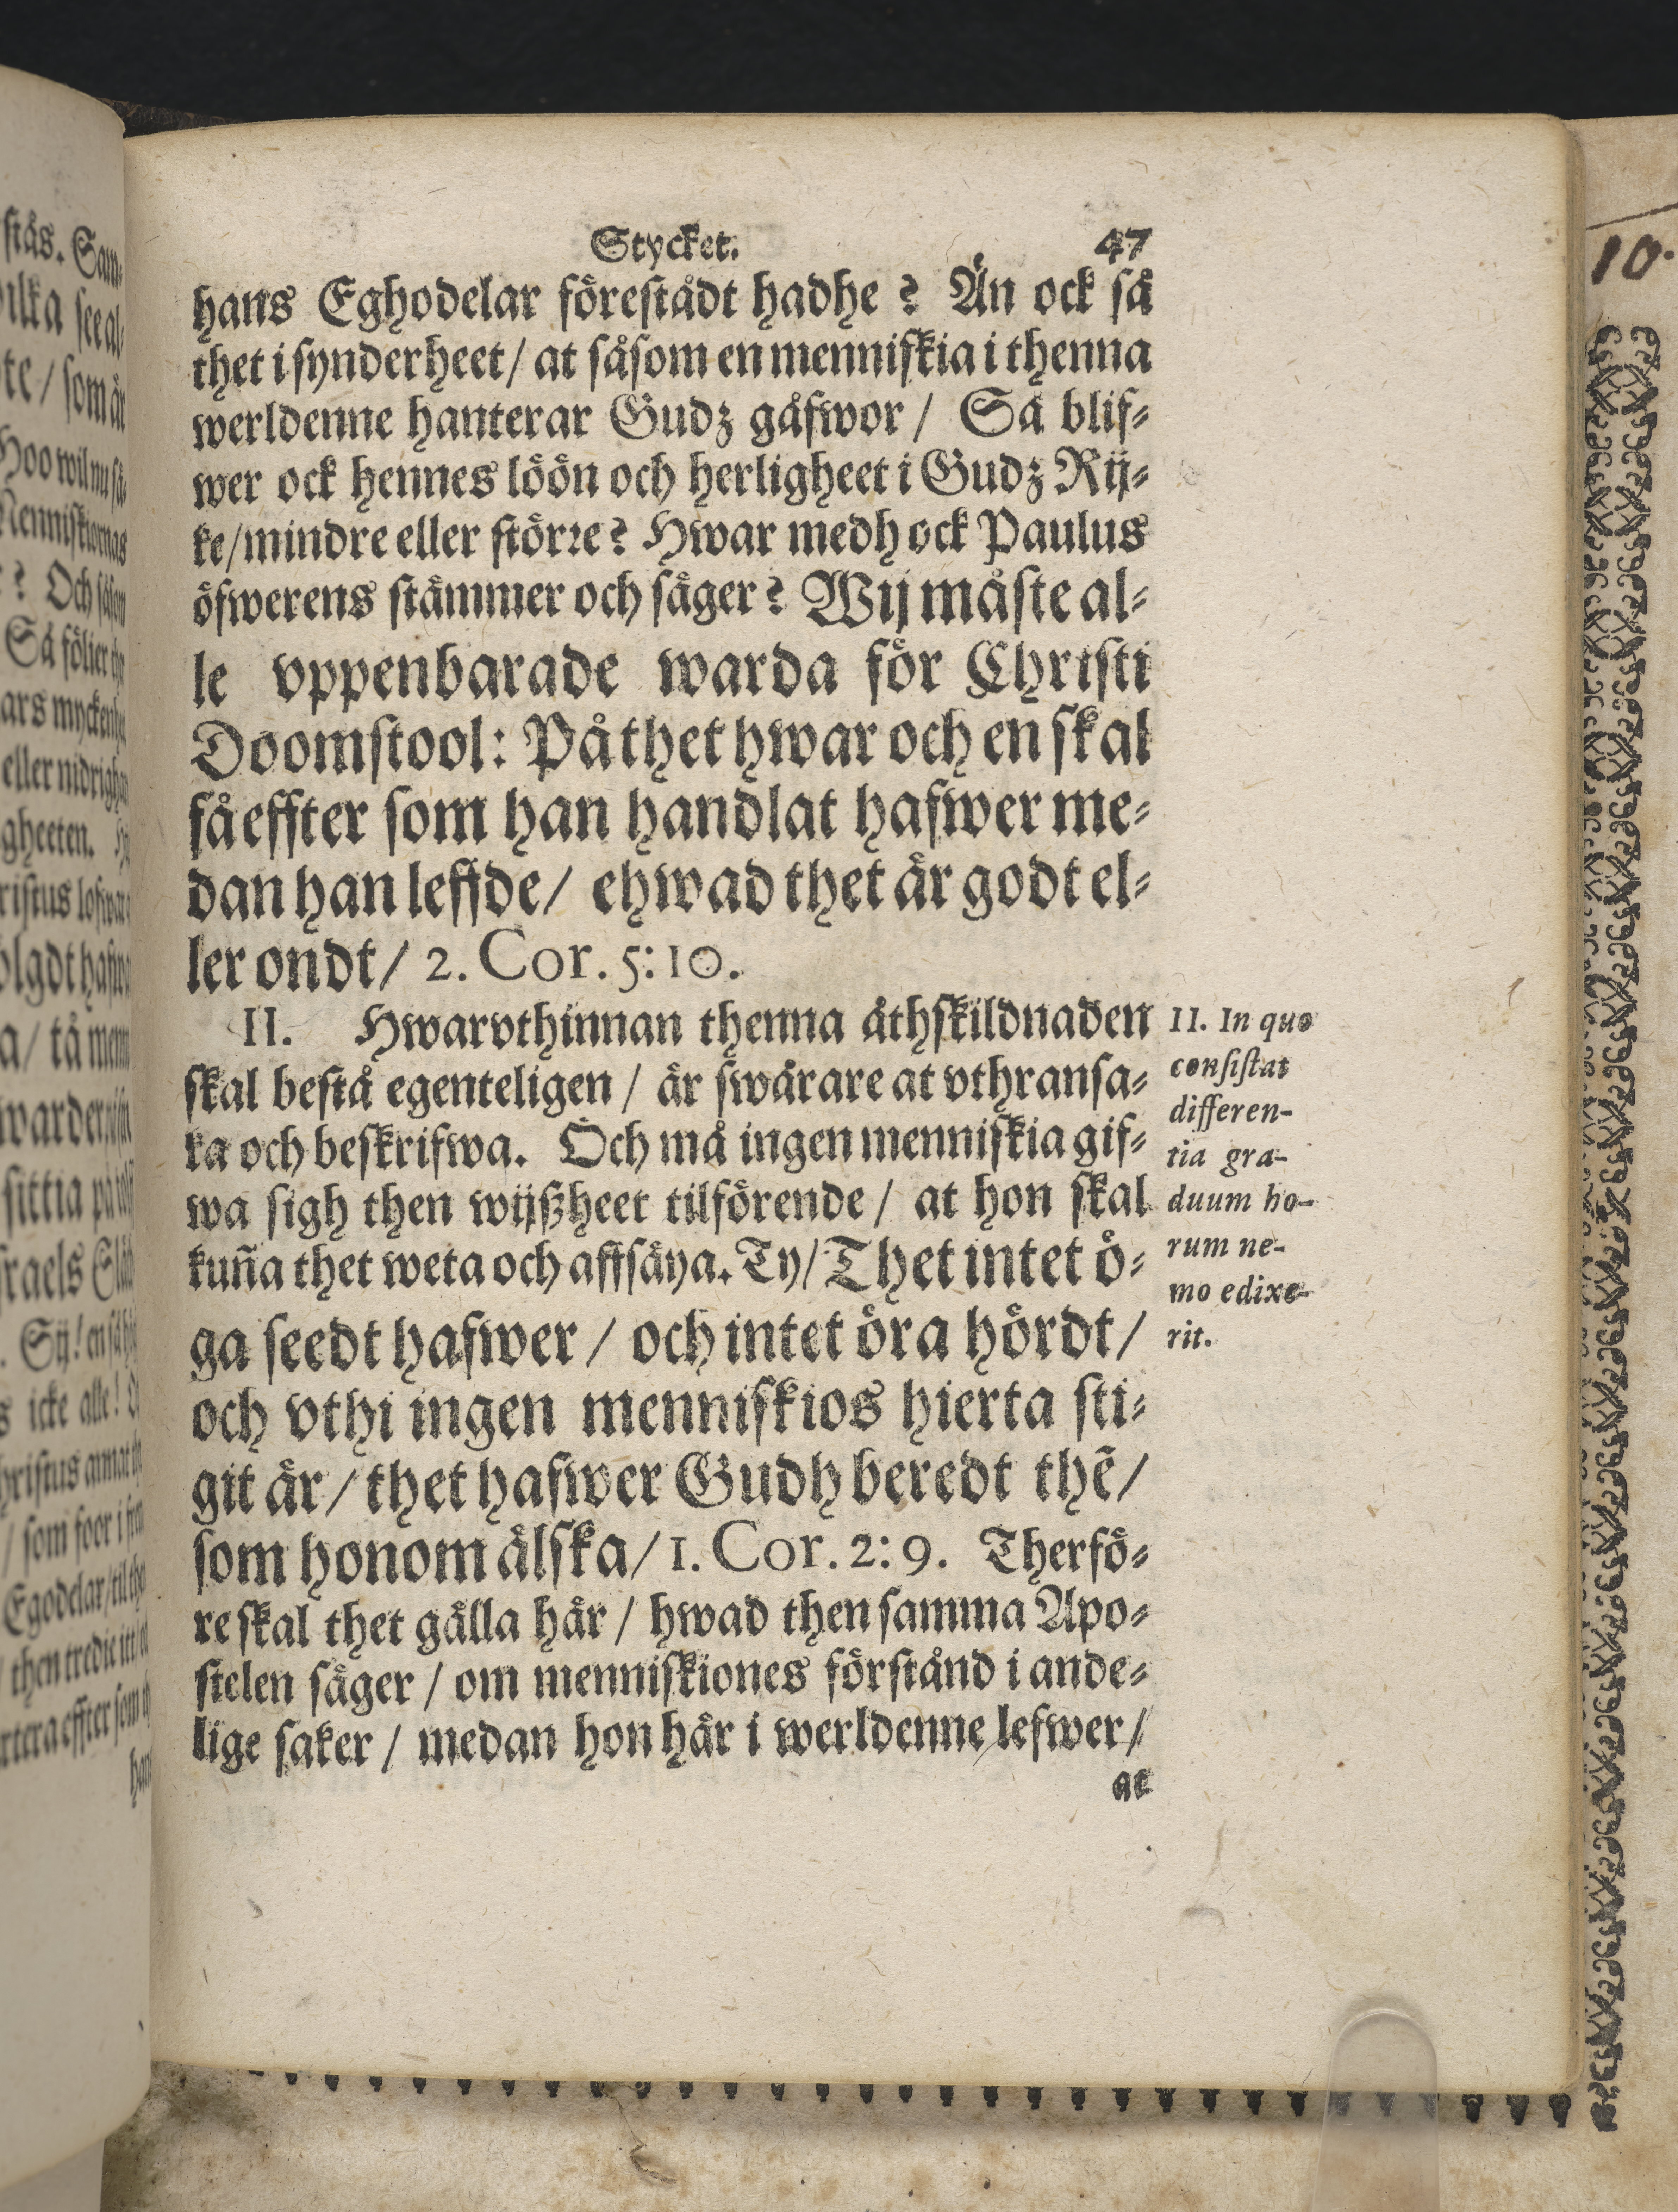 Stycket. 47
hans Eghodelar förestådt hadhe? Än ock så
thet i synderheet/ at såsom en menniskia i thenna
werldenne hanterar Gudz gåfwor/ Så blif-
wer ock hennes löön och herligheet i Gudz Rij-
ke/ mindre eller större? Hwar medh ock Paulus
öfwerens stämmer och säger? Wij måste al-
le vppenbarade warda för Christi
Doomstool: På thet hwar och en skal
få effter som han handlat hafwer me-
dan han leffde/ ehwad thet är godt el-
ler ondt/ 2. Cor. 5:10.
II. Hwarvthinnan thenna åthskildnaden
skal bestå egenteligen/ är swårare at vthransa-
ka och beskrifwa. Och må ingen menniskia gif-
wa sigh then wijßheet tilförende/ at hon skal
kun̄a thet weta och affsäya. Ty/ Thet intet ö-
ga seedt hafwer/ och intet öra hördt/
och vthi ingen menniskios hierta sti-
git är/ thet hafwer Gudh beredt thē/
som honom älska/ 1. Cor. 2:9. Therfö-
re skal thet gälla här/ hwad then samma Apo-
stelen säger/ om menniskiones förstånd i ande-
lige saker/ medan hon här i werldenne lefwer/
at
II. In quo
consistat
differen-
tia gra-
duum ho-
rum ne-
mo edixe-
rit.
10.